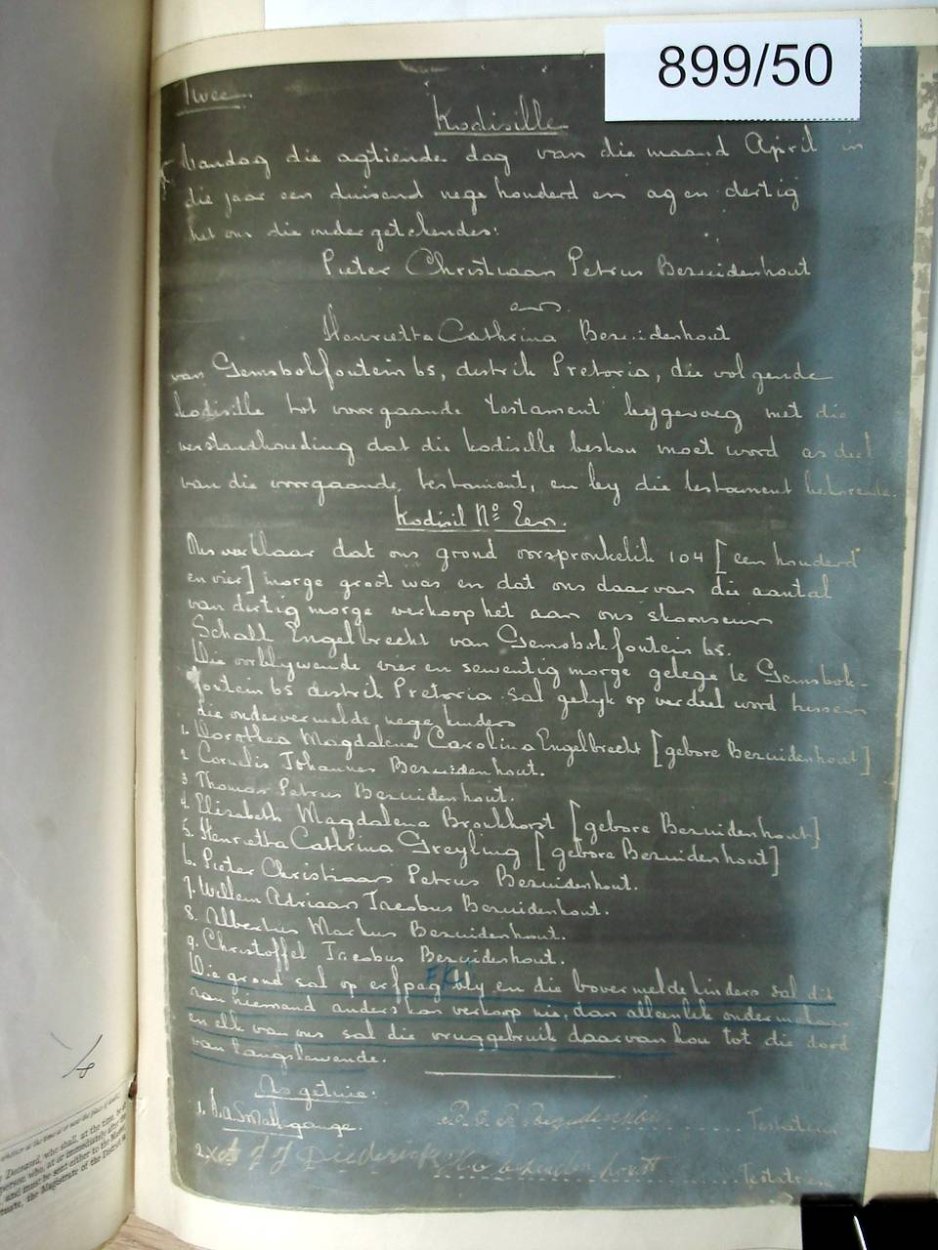 899/50
Twee.
Kodisille
Vandag die agtiende dag van die maand April in
die jaar een duisend nege honderd en ag en dertig
het ons die ondergetekendes:
Pieter Christiaan Petrus Bezuidenhout
en
Henrietta Cathrina Bezuidenhout
van Gemsbokfontein 65, distrik Pretoria, die volgende
kodisille tot voorgaande testament bygevoeg met die
verstandhouding dat die kodisille beskou moet word as deel
van die voorgaande testament, en by die testament behorende.
Kodisil No. Een.
Ons verklaar dat ons grond oorspronkelik 104 [een honderd
en vier] morge groot was en dat ons daarvan die aantal
van dertig morge verkoop het aan ons skoonseun
Schalk Engelbrecht van Gemsbokfontein 65.
Die oorblywende vier en sewentig morge gelege te Gemsbok-
fontein 65 distrik Pretoria sal gelyk op verdeel word tussen
die ondervermelde nege kinders
1. Dorothea Magdalena Carolina Engelbrecht [gebore Bezuidenhout]
2 Cornelis Johannes Bezuidenhout.
3 Thomas Petrus Bezuidenhout.
4. Elizabeth Magdalena Bronkhorst [gebore Bezuidenhout]
5. Henrietta Cathrina Greyling [gebore Bezuidenhout]
6. Pieter Christiaan Petrus Bezuidenhout.
7. Willem Adriaan Jacobus Bezuidenhout.
8. Albertus Markus Bezuidenhout.
9. Christoffel Jacobus Bezuidenhout.
Die grond sal op erfpag bly en die bovermelde kinders sal dit
aan niemand anders kan verkoop nie, dan alleenlik onder mekaar
en elk van ons sal die vruggebruik daarvan hou tot die dood
van langslewende.
As getuie:
1. Testateur
2. J J Diederiks Testatrise